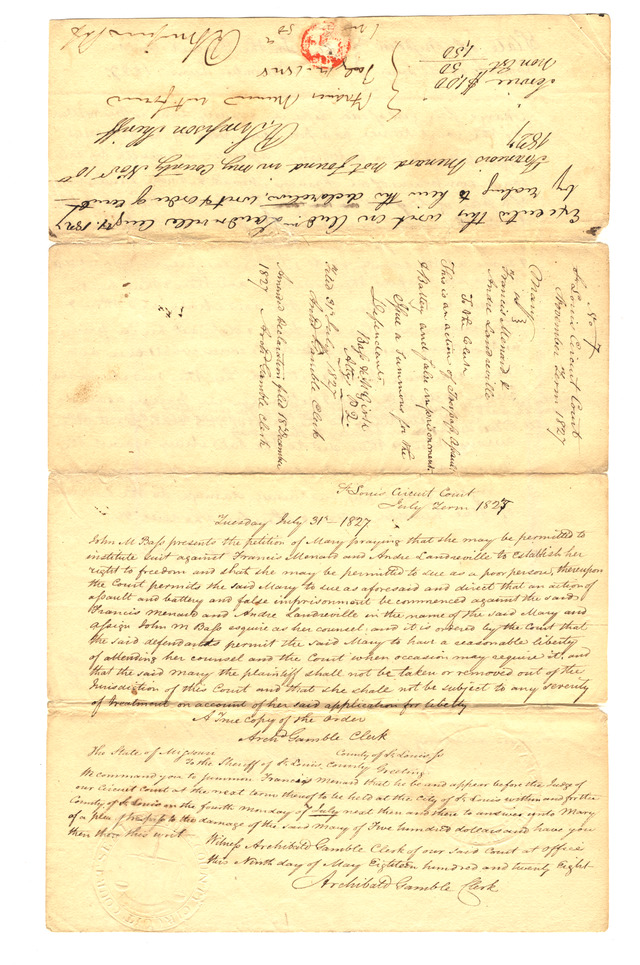 Executed this writ on Andre Landreville Augt 1827
by reading to him the declaration, writ & order of court
Francois Menard not found in my County Nov 10th
1827
R Simpson Sheriff
Service $1.00
Non Est 50
1,50
Francis Menard not found
R Simpson
No 7
St Louis Circuit Court
November Term 1827
Mary
vs
Francis Menard &
Andre Landreville
To the Clerk
This is an action of Trespass Assault
& Battery and false imprisonment
Issue a summons for the
Defendants
Bass & 
Atty
Filed 31st July 1827
Archd Gamble Clerk
Amended declaration filed 18 December
1827 Archd Gamble Clerk
St Louis Circuit Court
July Term 1827
Tuesday July 31st 1827
John M Bass presents the petition of Mary praying that she may be permitted to
institute suit against Francis Menard and Andre Landreville to establish her
right to freedom and that she may be permitted to sue as a poor person, thereupon
the Court permits the said Mary to sue as aforesaid and direct that an action of
assault and battery and false imprisonment be commenced against the said
Francis Menard and Andre Landreville in the name of the said Mary and
assign John M Bass esquire as her counsel, and it is ordered by the Court that
the said defendants permit the said Mary to have a reasonable liberty
of attending her counsel and the Court when occasion may require it, and
that the said Mary the plaintiff shall not be taken or removed out of the
Jurisdiction of this Court and that she shall not be subject to any severity
of treatment on account of her said application for liberty
A True Copy of the Order
Archd Gamble Clerk
The State of Missouri County of St Louis ss
To the Sheriff of St Louis County Greeting
We command you to summon Francis Menard that he be and appear before the Judge of
our Circuit Court at the next term thereof to be held at the City of St Louis within and for the
County of St Louis on the fourth Monday of July next then and there to answer unto Mary
of a plea of trespass to the damage of the said Mary of Five hundred dollars and have you
then there this writ
Witness Archibald Gamble Clerk of our said Court at office
this Ninth day of May Eighteen hundred and twenty Eight
Archibald Gamble Clerk